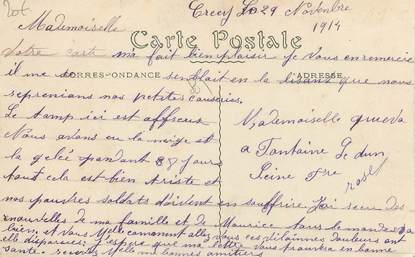 Crecy Le 29 Novembre
1914
Mademoiselle
Carte Postale
Votre carte ma fait bien plaisir je vous en remercie
il me semblait en le lisant que nous
CORRESPONDANCE ADRESSE
reprenions nos petites causeries.
Le temp ici est affreux
Nous avons eu la neige et
la gelée pendant 8 jours
tout cela est bien triste et
nos pauvres soldats doivent en souffrire. J'ai recu des
Mademoiselle
a Fontaine Le dun
Seine Infre
nouvelles de ma famille et de Maurice tous le monde va
bien. et vous Melle comment allez vous ces vilainnes douleurs ont
elle disparues; j'espere que ma lettre vous trouvera en bonne
santé. recevez Melle mes bonnes amitiers